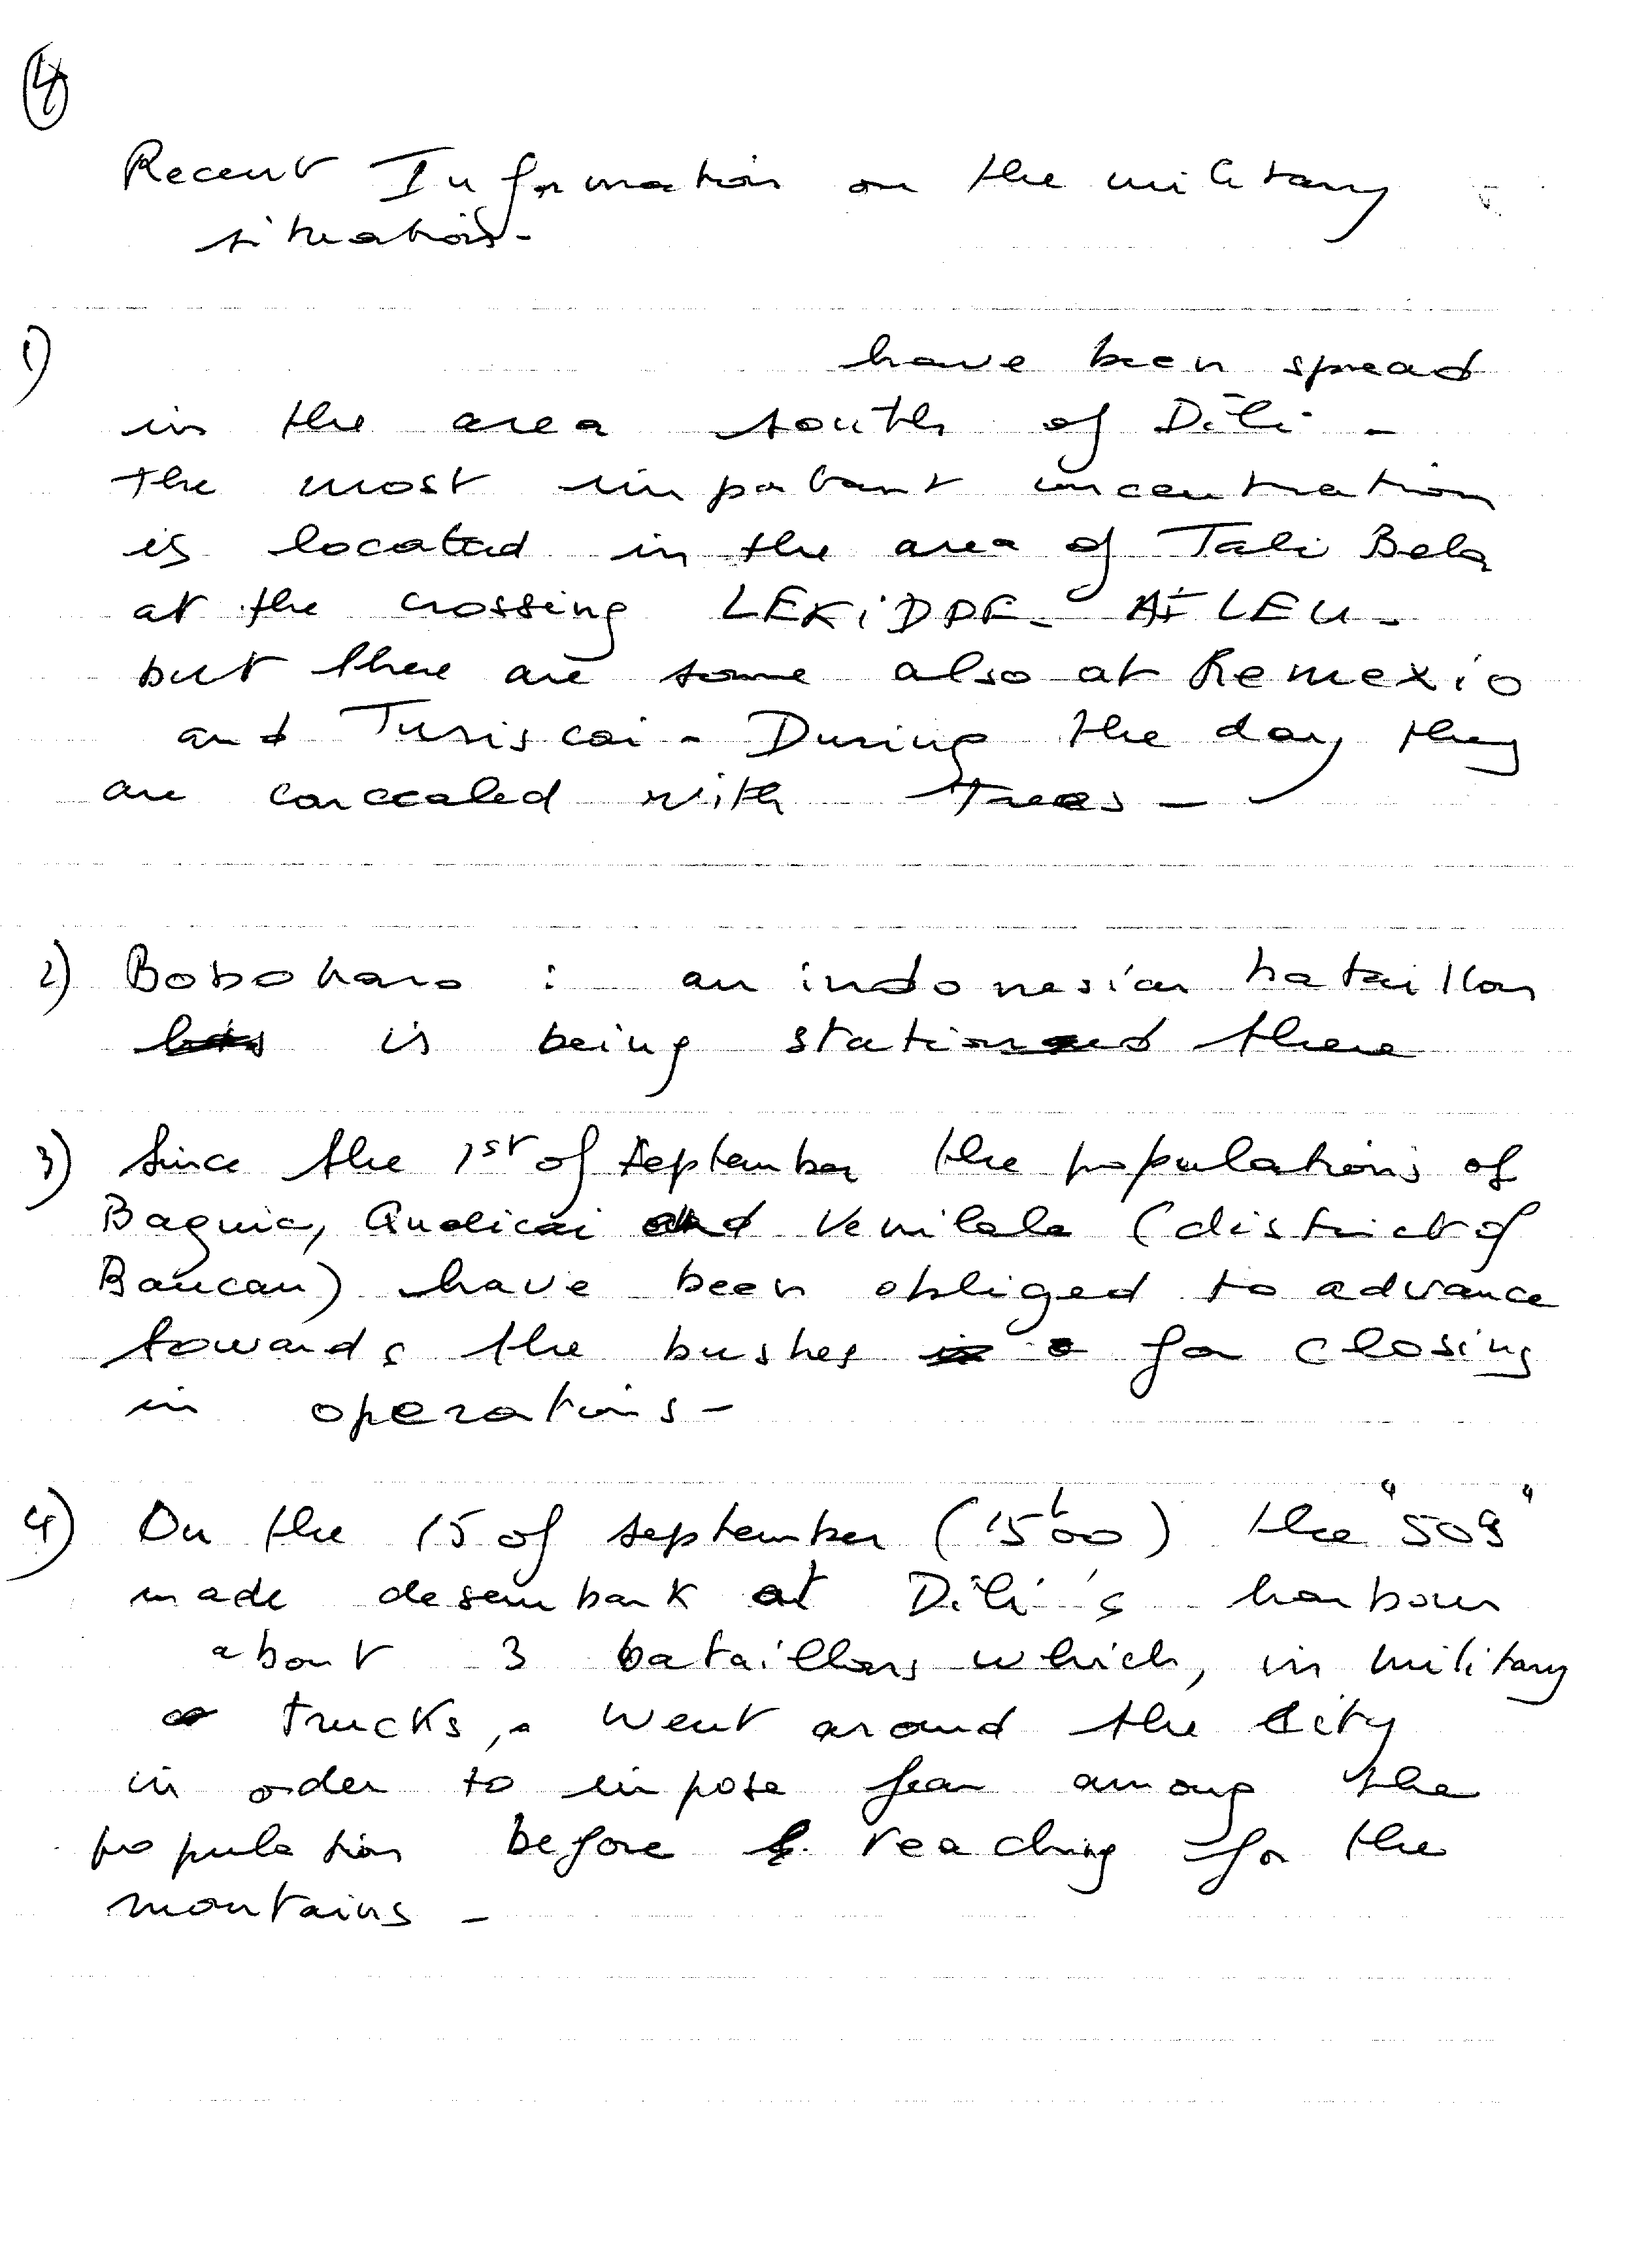 4
Recent Information on the military
situation -
1) have been spread
in the area south of Dili -
The most important concentration
is located in the area of Tali Bela
at the crossing LEKIDOE - AILEU -
but there are some also at Remexio
and Turiscai - During the day they
are concealed with trees -
2) Bobonaro : an indonesian bataillon
is being stationed there
3) Since the 1st of september the populations of
Baguia, Quelicai and Venilale (district of
Baucau) have been obliged to advance
towards the bushes for closing
in operations -
4) On the 15 of september (15h00) the "509"
made desembark at Dili's harbour
about 3 bataillons which, in military
trucks, went around the city
in order to impose fear among the
population before reaching for the
mountains -